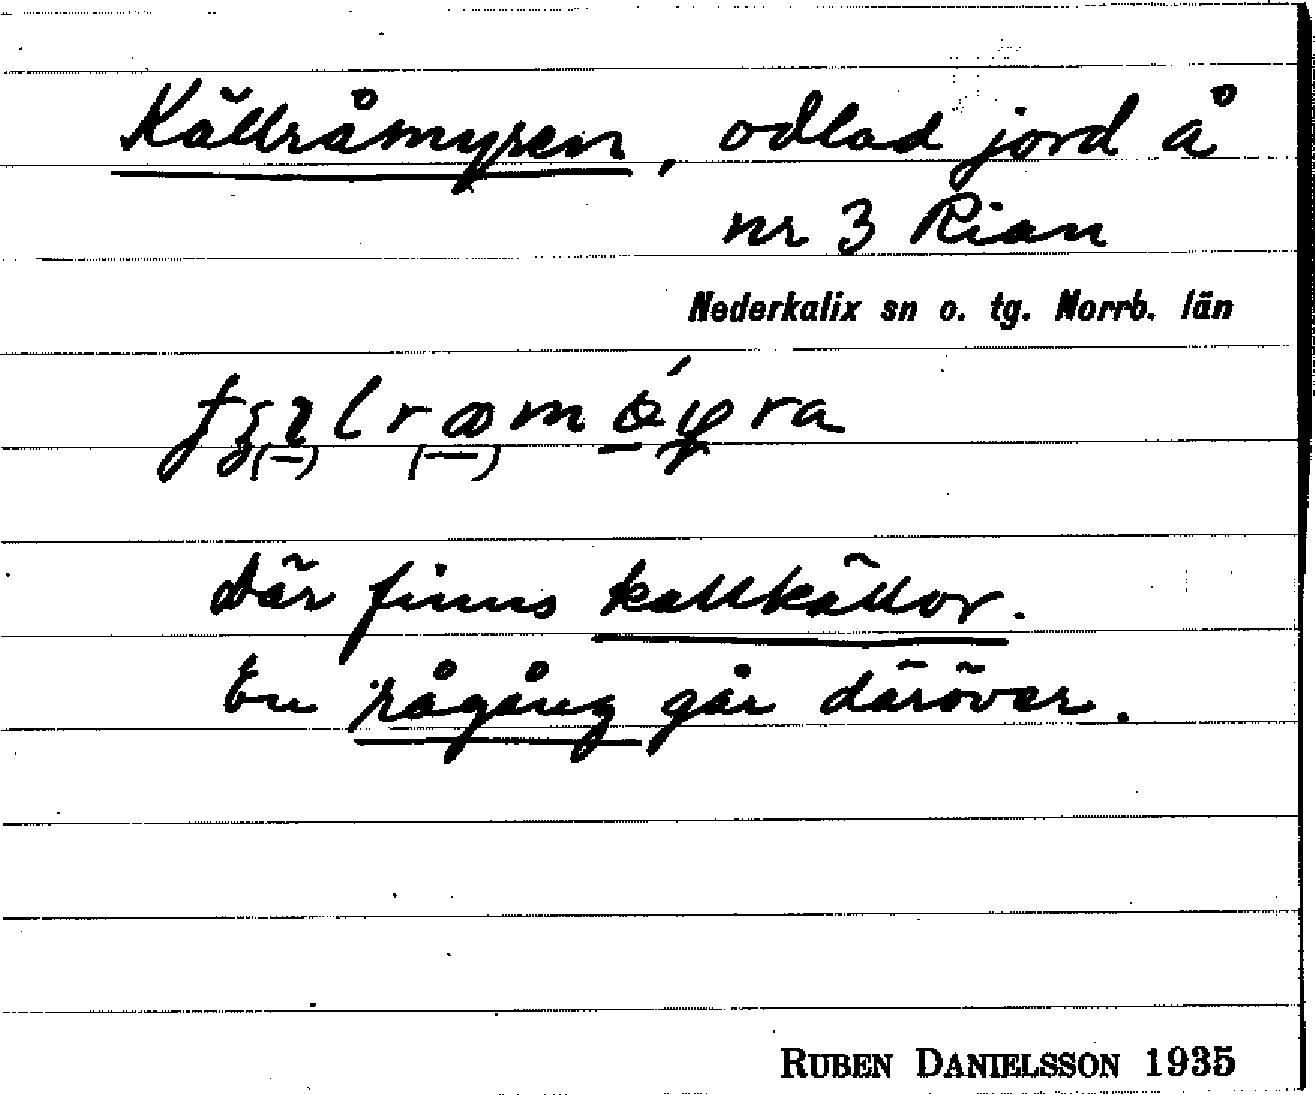 Källråmyren, odlad jord å
nr 3 Rian
Nederkalix sn o. tg. Norrb. län
Där finns kallkällor.
En rågång går däröver.
RUBEN DANIELSSON 1935